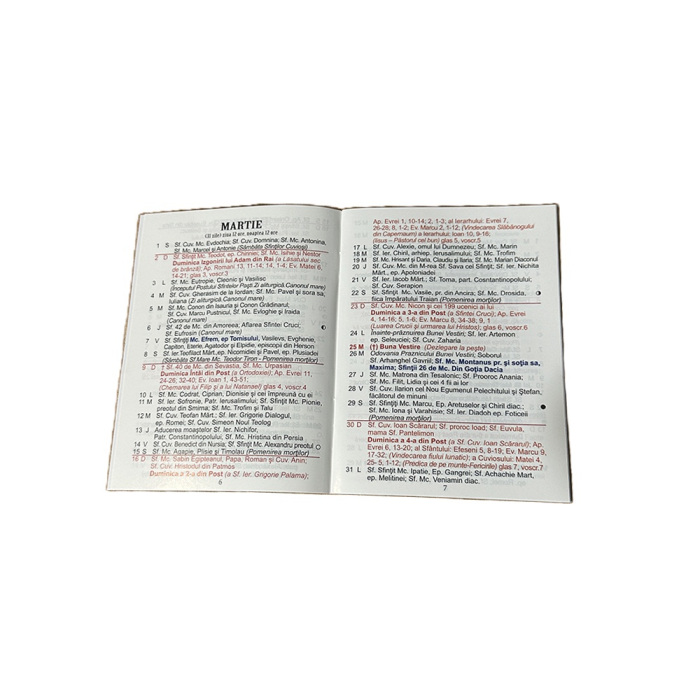 MARTIE
(31 zile) ziua 12 ore, noaptea 12 ore
1 S Sf. Cuv. Mc. Evdochia; Sf. Cuv. Domnina; Sf. Mc. Antonina,
Sf. Mc. Marcel și Antonie (Sâmbăta Sfinților Cuvioși)
2 D Sf. Sfințit Mc. Teodot, ep. Chiriniei; Sf. Mc. Isihie și Nestor
Duminica Izgonirii lui Adam din Rai (a Lăsatului sec
de brânză); Ap. Romani 13, 11-14, 14, 1-4, Ev. Matei 6,
14-21; glas 3, voscr. 3
3 L Sf. Mc. Eutropie, Cleonic și Vasilisc
(Începutul Postului Sfintelor Paști Zi aliturgică Canonul mare)
4 M Sf. Cuv. Gherasim de la Iordan; Sf. Mc. Pavel și sora sa,
Iuliana (Zi aliturgică Canonul mare)
5 M Sf. Mc. Conon din Isauria și Conon Grădinarul;
Sf. Cuv. Marcu Pustnicul, Sf. Mc. Evloghie și Iraida
(Canonul mare)
6 J Sf. 42 de Mc. din Amoreea; Aflarea Sfintei Cruci;
Sf. Eufrosin (Canonul mare)
7 V Sf. Sfințiți Mc. Efrem, ep Tomisului, Vasileus, Evghenie,
Capiton, Eterie, Agatodor și Elpidie, episcopii din Herson
8 S Sf. Ier.Teofilact Mărt.,ep. Nicomidiei și Pavel, ep. Plusiadei
(Sâmbăta Sf.Mare Mc. Teodor Tiron - Pomenirea morților)
9 D † Sf. 40 de Mc. din Sevastia, Sf. Mc. Urpasian
Duminica Întâi din Post (a Ortodoxiei); Ap. Evrei 11,
24-26; 32-40; Ev. Ioan 1, 43-51;
(Chemarea lui Filip și a lui Natanael) glas 4, voscr.4
10 L Sf. Mc. Codrat, Ciprian, Dionisie și cei împreună cu ei
11 M Sf. Ier. Sofronie, Patr. Ierusalimului; Sf. Sfințit Mc. Pionie,
preotul din Smirna; Sf. Mc. Trofim și Talu
12 M Sf. Cuv. Teofan Mărt.; Sf. Ier. Grigorie Dialogul,
ep. Romei; Sf. Cuv. Simeon Noul Teolog
13 J Aducerea moaștelor Sf. Ier. Nichifor,
Patr. Constantinopolului, Sf. Mc. Hristina din Persia
14 V Sf. Cuv. Benedict din Nursia; Sf. Sfințit Mc. Alexandru preotul
15 S Sf. Mc. Agapie, Plisie și Timolau (Pomenirea morților)
16 D Sf. Mc. Sabin Egipteanul, Papa, Roman și Cuv. Anin;
Sf. Cuv. Hristodul din Patmos
Duminica a 2-a din Post (a Sf. Ier. Grigorie Palama);
6
Ap. Evrei 1, 10-14; 2, 1-3; al Ierarhului: Evrei 7,
26-28; 8, 1-2; Ev. Marcu 2, 1-12; (Vindecarea Slăbănogului
din Capernaum) a Ierarhului: Ioan 10, 9-16;
(Iisus – Păstorul cel bun) glas 5, voscr.5
17 L Sf. Cuv. Alexie, omul lui Dumnezeu; Sf. Mc. Marin
18 M Sf. Ier. Chiril, arhiep. Ierusalimului; Sf. Mc. Trofim
19 M Sf. Mc. Hrisant și Daria, Claudiu și Ilaria; Sf. Mc. Marian Diaconul
20 J Sf. Cuv. Mc. din M-rea Sf. Sava cel Sfințit; Sf. Ier. Nichita
Mărt., ep. Apoloniadei
21 V Sf. Ier. Iacob Mărt.; Sf. Toma, part. Constantinopolului;
Sf. Cuv. Serapion
22 S Sf. Sfințit Mc. Vasile, pr. din Ancira; Sf. Mc. Drosida,
fiica împăratului Traian (Pomenirea morților)
23 D Sf. Cuv. Mc. Nicon și cei 199 ucenici ai lui
Duminica a 3-a din Post (a Sfintei Cruci); Ap. Evrei
4, 14-16; 5, 1-6; Ev. Marcu 8, 34-38; 9, 1
(Luarea Crucii și urmarea lui Hristos); glas 6, voscr.6
24 L Înainte-prăznuirea Bunei Vestiri; Sf. Ier. Artemon
ep. Seleuciei; Sf. Cuv. Zaharia
25 M (†) Buna Vestire (Dezlegare la pește)
26 M Odovania Praznicului Bunei Vestiri, Soborul
Sf. Arhanghel Gavriil; Sf. Mc. Montanus pr. și soția sa,
Maxima; Sfinții 26 de Mc. Din Goția Dacia
27 J Sf. Mc. Matrona din Tesalonic; Sf. Prooroc Anania;
Sf. Mc. Filit, Lidia și cei 4 fii ai lor
28 V Sf. Cuv. Ilarion cel Nou Egumenul Pelechitului și Ștefan,
făcătorul de minuni
29 S Sf. Sfințiți Mc. Marcu, Ep. Aretuselor și Chiril diac.;
Sf. Mc. Iona și Varahisie; Sf. Ier. Diadoh ep. Foticeii
(Pomenirea morților)
30 D Sf. Cuv. Ioan Scărarul; Sf. proroc Ioad; Sf. Euvula,
mama Sf. Pantelimon
Duminica a 4-a din Post (a Sf. Cuv. Ioan Scărarul); Ap.
Evrei 6, 13-20; al Sfântului: Efeseni 5, 8-19; Ev. Marcu 9,
17-32; (Vindecarea fiului lunatic); a Cuviosului: Matei 4,
25- 5, 1-12; (Predica de pe munte-Fericirile) glas 7, voscr.7
31 L Sf. Sfințit Mc. Ipatie, Ep. Gangrei; Sf. Achachie Mart,
ep. Melitinei; Sf. Mc. Veniamin diac.
7